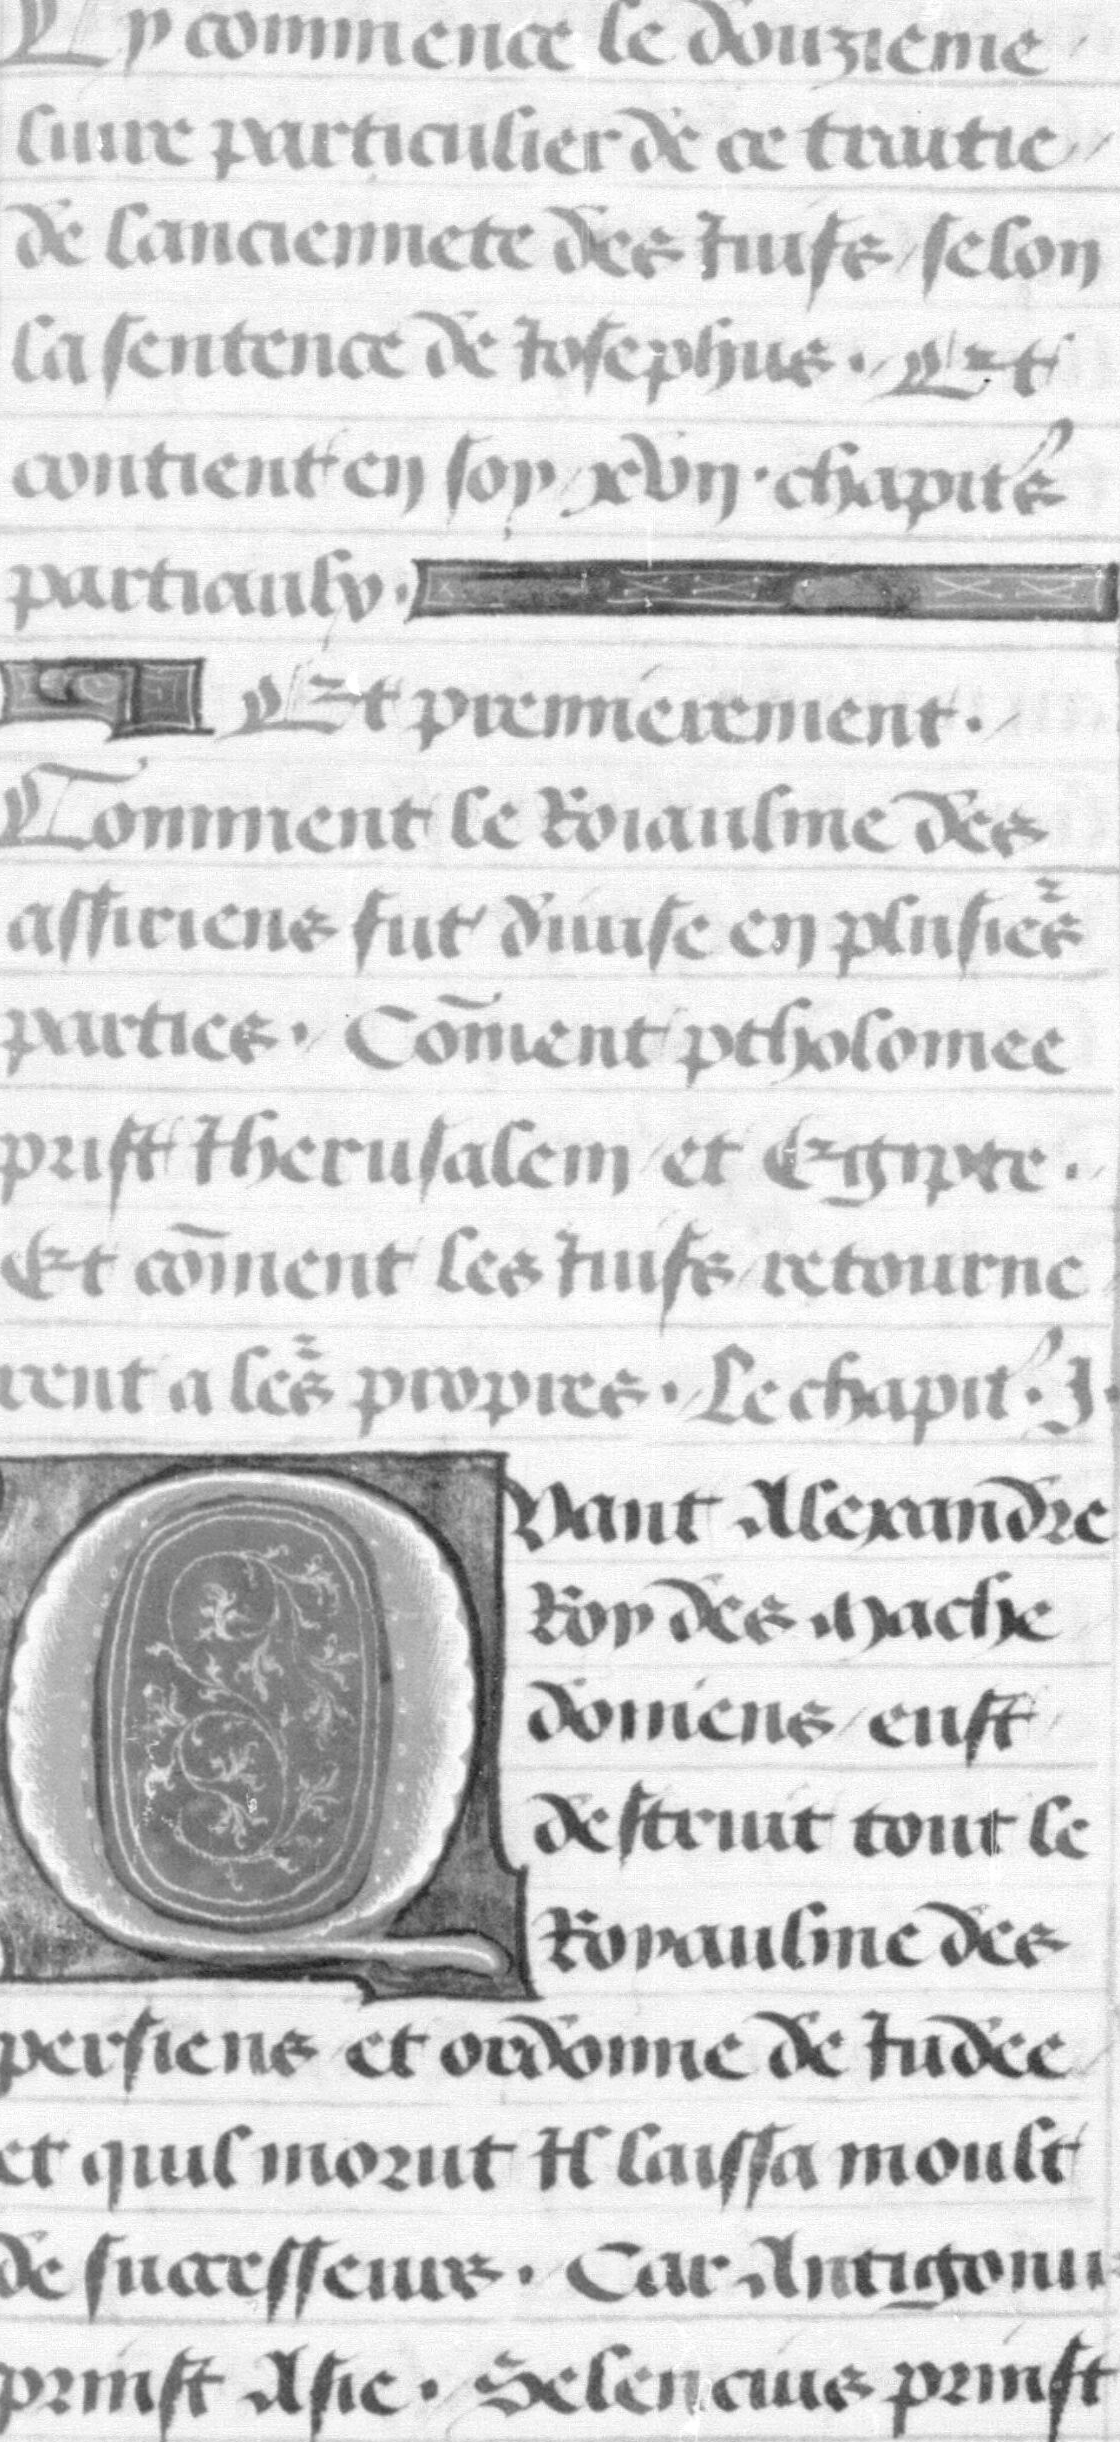 Cy commence le douzieme
liure particulier de ce traitie
de lanciennete des Iuifs / selon
la sentence de Iosephus. Et
contient en soy xvij. chapitrs
particulrs.
Et premierement.
Comment le Roiaulme des
assiriens fut diuise en plusieрs
parties. Cõment ptholomee
prist Iherusalem et Egipte.
Et cõment les Iuifs retourne
rent a leurs propres. Le chapitre. I.
Quant Alexandre
Roy des Mache
doniens / eust
destruit tout le
Royaulme des
persiens et ordonne de Iudee
et quil morut Il laissa moult
de successeurs. Car Antigonu
prinst Asie. Selencius prinst